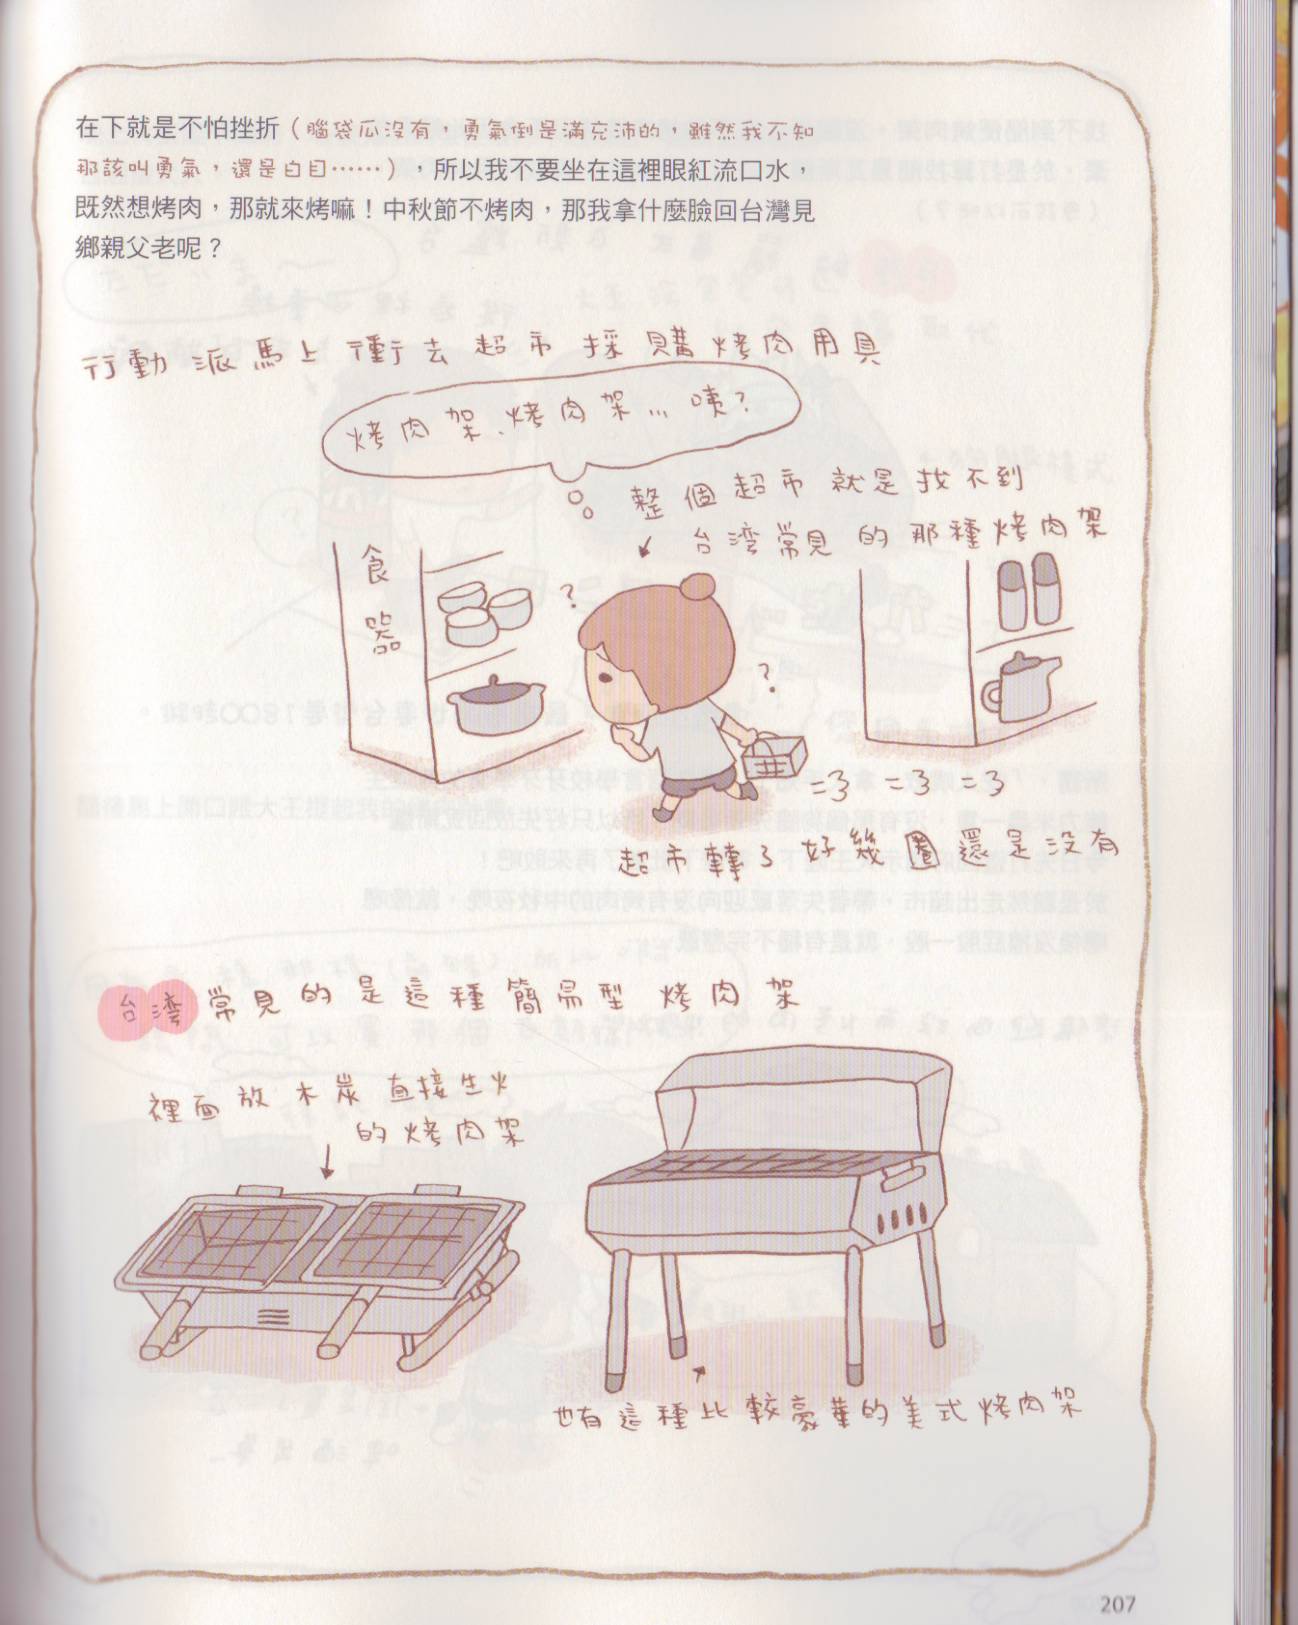 在下就是不怕挫折（腦袋瓜沒有，勇氣倒是滿充沛的，雖然我不知
那該叫勇氣，還是白目⋯⋯），所以我不要坐在這裡眼紅流口水，
既然想烤肉，那就來烤嘛！中秋節不烤肉，那我拿什麼臉回台灣見
鄉親父老呢？
行動派馬上衝去超市採購烤肉用具
烤肉架、烤肉架...咦？
整個超市就是找不到
台湾常見的那種烤肉架
食器
?
?
=3 =3 =3
超市轉了好幾圈還是沒有
台湾常見的是這種簡易型烤肉架
裡面放木炭直接生火
的烤肉架
也有這種比較豪華的美式烤肉架
207